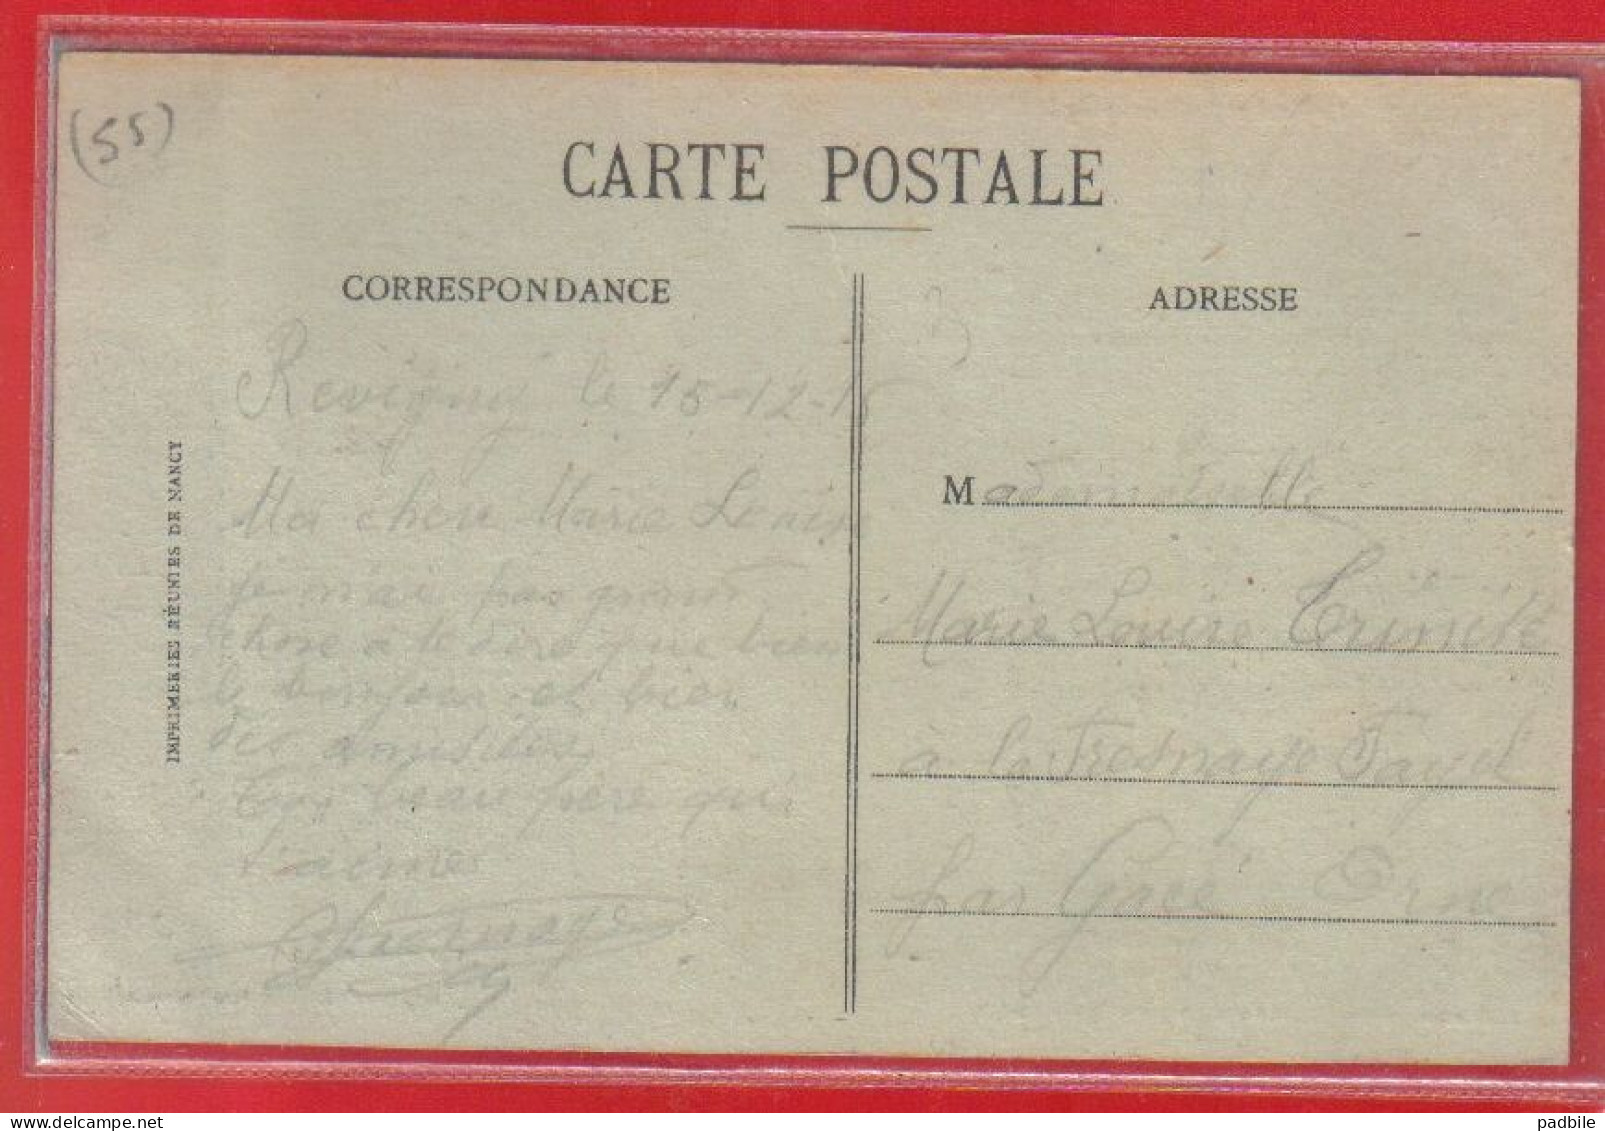 (55)
CARTE POSTALE
CORRESPONDANCE
ADRESSE
IMPRIMERIES RÉUNIES DE NANCY
Revigny le 15-12-15
Ma chere Marie Louise
je n'ai pas grand
chose à te dire que bien
le bonjour et bien
des amitiés
Ton beau frere qui
t'aime
Mademoiselle
Marie Louise
à la Fresnaye Fayel
par Gacé Orne
padbile